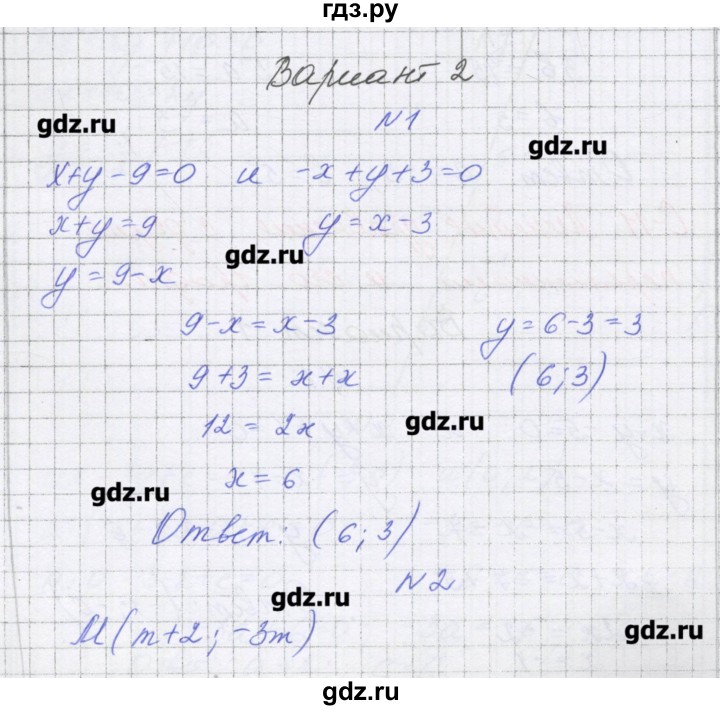 гдз.ру
Вариант 2
gdz.ru
№1
gdz.ru
x+y-9=0 и -x+y+3=0
x+y=9 y=x-3
gdz.ru
y=9-x
9-x=x-3 y=6-3=3
9+3=x+x (6;3)
12=2x
gdz.ru
x=6
gdz.ru
Ответ: (6;3)
№2
gdz.ru
M(m+2;-3m)
gdz.ru
gdz.ru